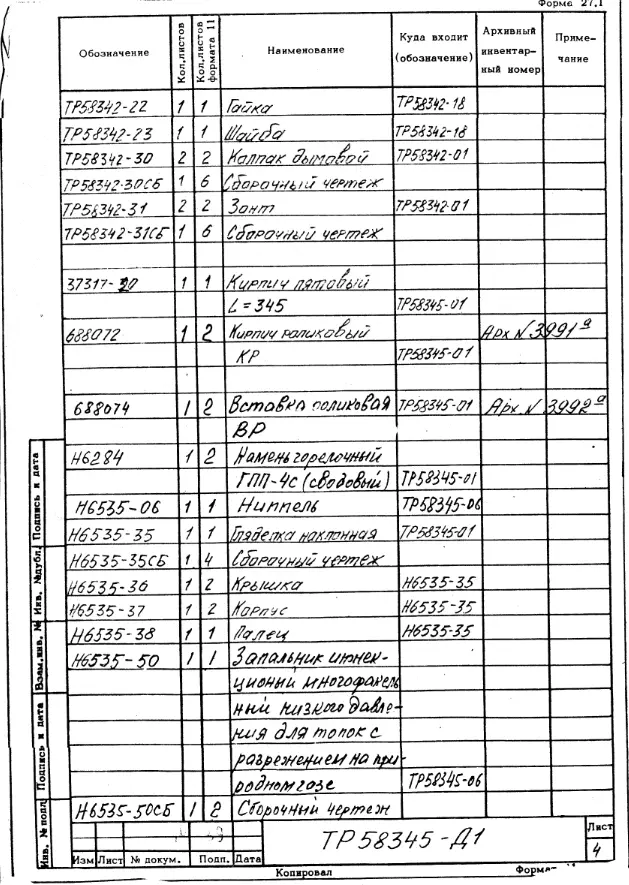 Форма 27.1
Обозначение Кол.листов Кол.листов формата 11 Наименование Куда входит (обозначение) Архивный инвентарный номер Примечание
ТР58342-22 1 1 Гайка ТР58342-18
ТР58342-23 1 1 Шайба ТР58342-18
ТР58342-30 2 2 Колпак дымовой ТР58342-01
ТР58342-30СБ 1 6 Сборочный чертеж
ТР58342-31 2 2 Зонт ТР58342-01
ТР58342-31СБ 1 6 Сборочный чертеж
37317- 1 1 Кирпич пятовый
L=345 ТР58345-01
688072 1 2 Кирпич роликовый Арх.№3991а
КР ТР58345-01
688074 1 2 Вставка роликовая ТР58345-01 Арх.№3992а
ВР
Н6284 1 2 Камень горелочный
ГПП-4с (сводовый) ТР58345-01
Н6535-06 1 1 Ниппель ТР58345-06
Н6535-35 1 1 Гляделка наклонная ТР58345-01
Н6535-35СБ 1 4 Сборочный чертеж
Н6535-36 1 2 Крышка Н6535-35
Н6535-37 1 2 Корпус Н6535-35
Н6535-38 1 1 Палец Н6535-35
Н6535-50 1 1 Запальник инжек-
ционный многофакель
ный низкого давле-
ния для топок с
разрежением на при-
родном газе ТР58345-06
Н6535-50СБ 1 2 Сборочный чертеж
Инв. № подл. Подпись и дата Взам.инв. № Инв. №дубл. Подпись и дата
ТР58345-Д1
Лист
4
Изм Лист № докум. Подп. Дата
Копировал